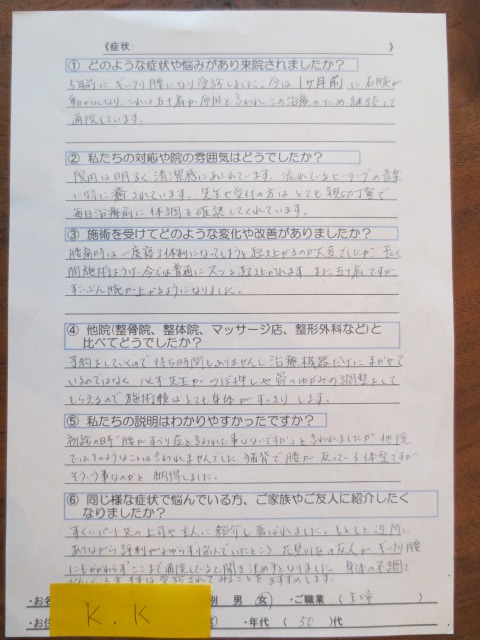 《症状: 》
① どのような症状や悩みがあり来院されましたか?
5年前にギックリ腰になり受診しました。今は1ヶ月前に右腕が
動かなくなり、これは五十肩が原因と言われこの治療のため継続して
通院しています。
② 私たちの対応や院の雰囲気はどうでしたか?
院内は明るく清潔感にあふれています。流れているヒーリングの音楽
に特に癒されています。先生や受付の方はとても親切丁寧で
毎日治療前に体調を確認してくれています。
③ 施術を受けてどのような変化や改善がありましたか?
腰痛時は一度寝る体制になってしまうと起き上がるのが大変でしたが、長く
間施術より今では普通にスッと起き上がれます。また五十肩ですが
ずいぶん腕が上がるようになりました。
④ 他院(整骨院、整体院、マッサージ店、整形外科など)と
比べてどうでしたか?
予約をしていくので待ち時間もありませんし治療機器だけにまかせて
いるのではなく、必ず先生がつぼ押しや骨のゆがみの調整をして
もらえるので施術後はとても身体がすっきりします。
⑤ 私たちの説明はわかりやすかったですか?
初診の時“腰がすべり症と言われた事はないですか”と言われましたが他院
ではそのようなことは言われませんでした。猫背で腰が反っている体型ですが
そういう事なのかと納得しました。
⑥ 同じ様な症状で悩んでいる方、ご家族やご友人に紹介したく
なりましたか?
すぐにパート先の上司や主人に紹介し喜ばれました。もともと近所に
ありながら評判がよかったが悩んでいたところ、花見川区の友人がギックリ腰
にもかかわらずここまで通院していると聞き決め手となりました。身体の不調で
まずは受診されてみることをおすすめします。
・お名
K.K
別 男・女 ・ご職業 ( 主婦 )
・お住
・年代 ( 50 ) 代